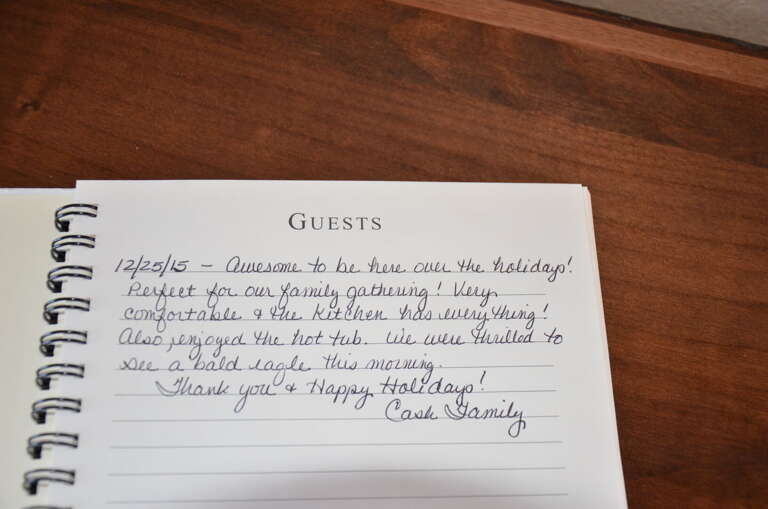 GUESTS
12/25/15 - Awesome to be here over the holidays!
Perfect for our family gathering! Very
comfortable & the kitchen has everything!
Also, enjoyed the hot tub. We were thrilled to
see a bald eagle this morning.
Thank you & Happy Holidays!
Cash Family